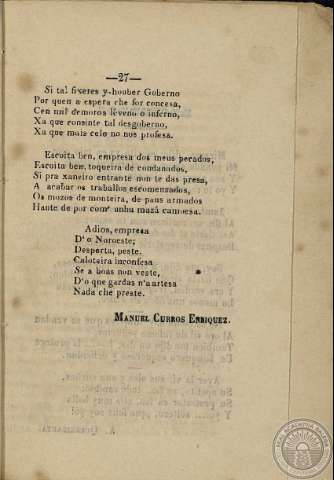 —27—
Si tal fixeres y-houber Goberno
Por quen a espera che for concesa,
Cen mil demoros léveno o inferno,
Xa que consinte tal desgoberno,
Xa que mais celo no nos profesa.
Escoita ben, empresa dos meus pecados,
Escoita ben, toqueira de condanados,
Si pra xaneiro entrante non te das presa,
A acabar os traballos escomenzados,
Os mozos de monteira, de paus armados
Hante de por com' unha mazá camoesa.
Adios, empresa
D'o Noroeste;
Desperta, peste.
Caloteira inconfesa
Se a boas non veste,
D'o que gardas n'a artesa
Nada che preste.
MANUEL CURROS ENRIQUEZ.